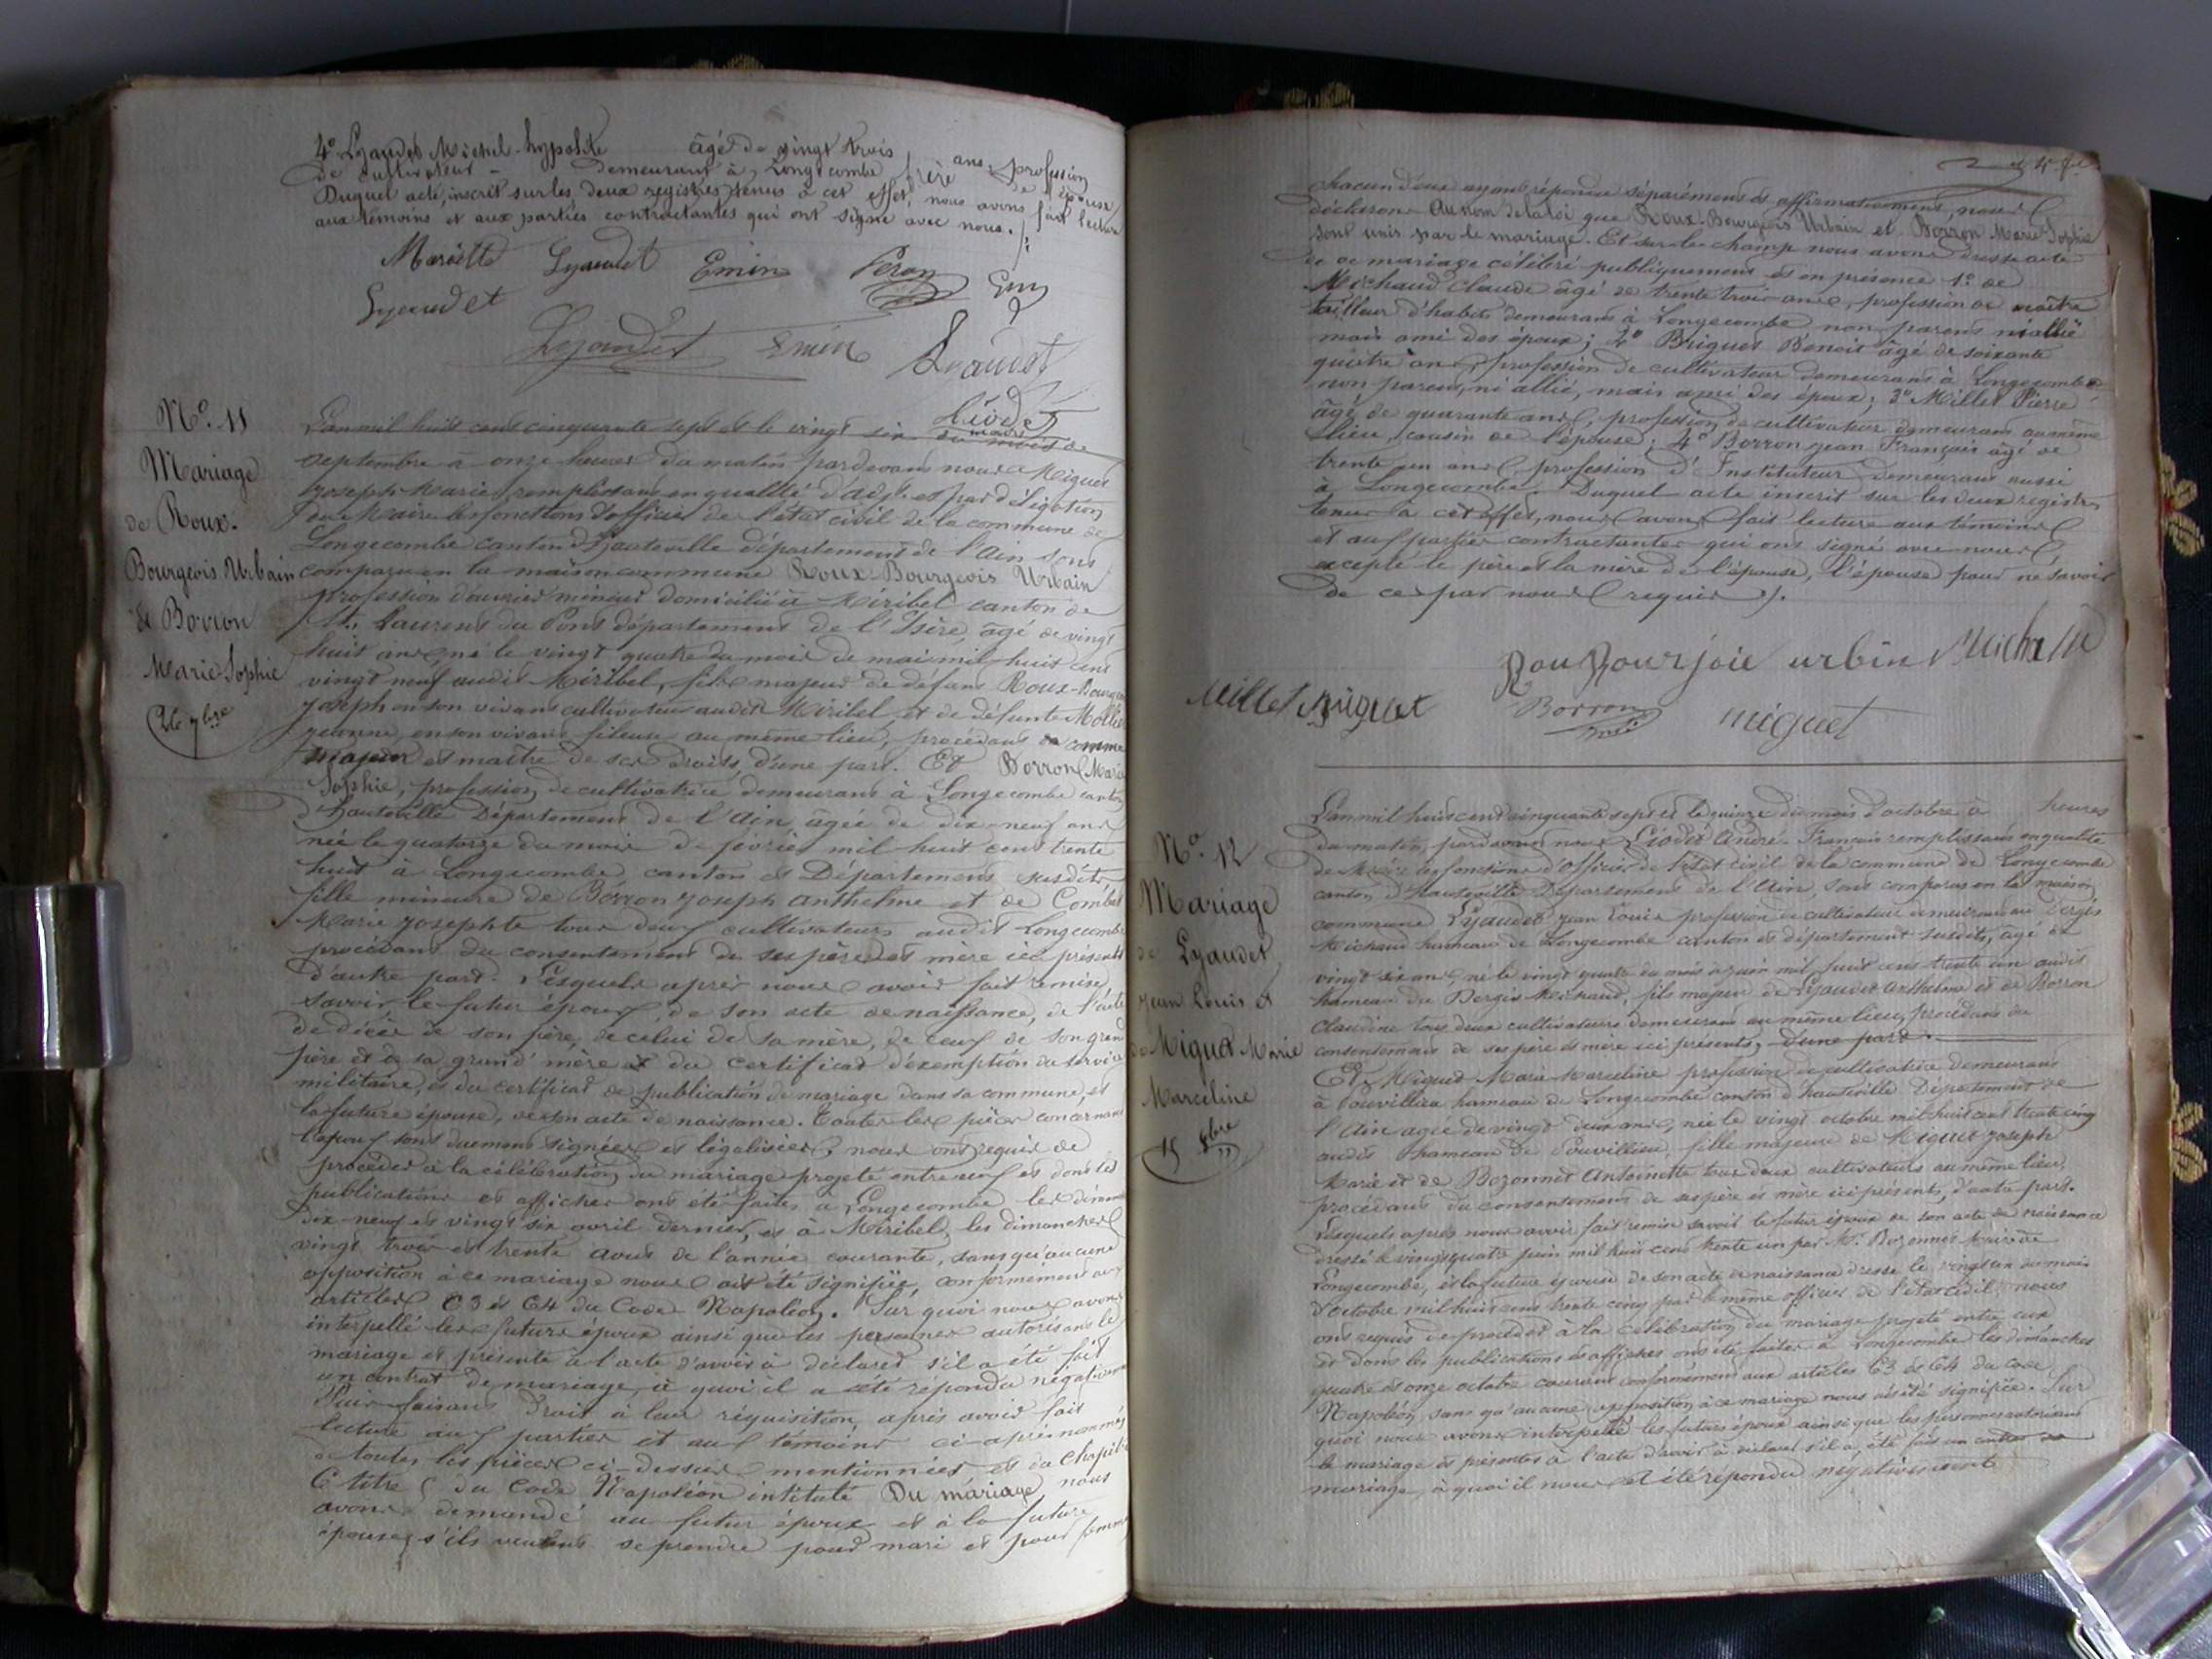 4º Lyaudet Michel-hypolite âgé de vingt trois ans, profession
de cultivateur - demeurant à Longecombe frère de l'époux
Duquel acte, inscrit sur les deux registres tenus à cet effet, nous avons fait lecture
aux témoins et aux parties contractantes qui ont signé avec nous.
Lyaudet Emin Peron
Lyaudet
Lyaudet Emin Lyaudet
Liodet
maire
Nº. 11
Mariage
de Roux-
Bourgeois Urbain
Et Borron
Marie Sophie
26 7bre
L'an mil huit cent cinquante sept et le vingt six du mois de
septembre à onze heures du matin pardevant nous Miguet
Joseph-Marie, remplissant en qualité d'adjt. et par délégation
du Maire les fonctions d'officier de l'état civil de la commune de
Longecombe canton d'Hauteville département de l'Ain sont
comparu en la maison commune Roux-Bourgeois Urbain
profession d'ouvrier mineur domicilié à Miribel canton de
St. Laurent du Pont département de l'Isère, âgé de vingt
huit ans né le vingt quatre du mois de mai mil huit cent
vingt neuf audit Miribel, fils majeur de défunt Roux-Bourgeois
Joseph en son vivant cultivateur audit Miribel et de défunte
en son vivant fileuse au même lieu, procédant comme
majeur et maître de ses droits d'une part. Et Borron Marie
Sophie, profession de cultivatrice demeurant à Longecombe canton
d'hauteville Département de l'Ain, âgée de dix-neuf ans
née le quatorze du mois de février mil huit cent trente
huit à Longecombe, canton et Département susdits
fille mineure de Borron Joseph anthelme et de Combet
Marie Josephte tous deux cultivateurs audit Longecombe
procédant du consentement de ses père et mère ici présents
d'autre part. Lesquels après nous avoir fait remise
savoir le futur époux, de son acte de naissance, de l'acte
de décès de son père, de celui de sa mère, de ceux de son grand
père et de sa grand'mère et du certificat d'exemption du service
militaire, et du certificat de publication de mariage dans sa commune, et
la future épouse, de son acte de naissance. Toutes les pièces concernant
l'époux sont duement signées et légalisées, nous ont requis de
procéder à la célébration du mariage projeté entre eux et dont les
publications et affiches ont été faites à Longecombe les dimanches
dix-neuf et vingt six avril dernier, et à Miribel, les dimanches
vingt trois et trente aout de l'année courante, sans qu'aucune
opposition à ce mariage nous ait été signifiée, conformément aux
articles 63 et 64 du Code Napoléon. Sur quoi nous avons
interpellé les futurs époux ainsi que les personnes autorisant le
mariage et présente à l'acte d'avoir à déclarer s'il a été fait
un contrat de mariage, à quoi il a été répondu négativement
Puis faisant droit à leur réquisition, après avoir fait
lecture aux parties et aux témoins ci-après nommés
de toutes les pièces ci-dessus mentionnées et du chapitre
6 titre 5 du Code Napoléon intitulé Du mariage, nous
avons demandé au futur époux et à la future
épouse, s'ils veulent se prendre pour mari et pour femme
chacun d'eux ayant répondu séparément et affirmativement, nous
déclarons Au nom de la loi que Roux-Bourgeois Urbain et Borron Marie Sophie
sont unis par le mariage. Et sur le champ nous avons dressé acte
de ce mariage célébré publiquement et en présence 1º. de
Michaud Claude âgé de trente trois ans, profession de maître
tailleur d'habits demeurant à Longecombe non parent ni allié
mais ami des époux; 2º Briguet Benoit âgé de soixante
quatre ans, profession de cultivateur demeurant à Longecombe
non parent, ni allié, mais ami des époux; 3º Millet Pierre
âgé de quarante ans, profession de cultivateur demeurant au même
lieu, cousin de l'épouse; 4º Borron Jean François âgé de
trente un ans, profession d'Instituteur demeurant aussi
à Longecombe. Duquel acte inscrit sur les deux registres
tenus à cet effet, nous avons fait lecture aux témoins
et aux parties contractantes qui ont signé avec nous
excepté le père et la mère de l'épouse, l'épouse pour ne savoir
de ce par nous requis.
Rou Bourjoie urbin
Millet Briguet Borron miguet
Nº. 12
Mariage
de Lyaudet
Jean Louis et
de Miguet Marie
Marceline
15 8bre
L'an mil huit cent cinquante sept et le quinze du mois d'octobre à heures
du matin, pardevant nous Liodet André-François remplissant en qualité
de Maire les fonctions d'officier de l'état civil de la commune de Longecombe
canton d'Hauteville Département de l'Ain, sont comparus en la maison
commune Lyaudet Jean Louis profession de cultivateur demeurant au Dergis
Michaud hameau de Longecombe canton et département susdits, âgé de
vingt six ans, né le vingt quatre du mois de juin mil huit cent trente un audit
hameau du Dergis Michaud, fils majeur de Lyaudet Anthelme et de Borron
Claudine tous deux cultivateurs demeurant au même lieu, procédant du
consentement de ses père et mère ici présents, d'une part.
Et Miguet Marie Marceline profession de cultivatrice demeurant
à Pouvillieu hameau de Longecombe canton d'hauteville Département de
l'Ain agée de vingt deux ans, née le vingt octobre mil huit cent trente cinq
audit hameau de Pouvillieu, fille majeure de Miguet Joseph
Marie et de Bozonnet Antoinette tous deux cultivateurs au même lieu,
procédant du consentement de ses père et mère ici présents, d'autre part.
Lesquels après nous avoir fait remise savoir le futur époux de son acte de naissance
dressé le vingt quatre juin mil huit cent trente un par Mr. Bozonnet Maire de
Longecombe, et la future épouse de son acte de naissance dressé le vingt un du mois
d'octobre mil huit cent trente cinq par le même officier de l'état civil, nous
ont requis de procéder à la célébration du mariage projeté entre eux
et dont les publications et affiches ont été faites à Longecombe les dimanches
quatre et onze octobre courant conformément aux articles 63 et 64 du Code
Napoléon, sans qu'aucune opposition à ce mariage nous ait été signifiée. Sur
quoi nous avons interpellé les futurs époux ainsi que les personnes autorisant
le mariage et présentes à l'acte d'avoir à déclarer s'il a été fait un contrat de
mariage, à quoi il nous a été répondu négativement